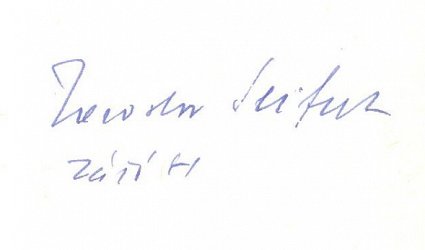 Jaroslav Seifert
září